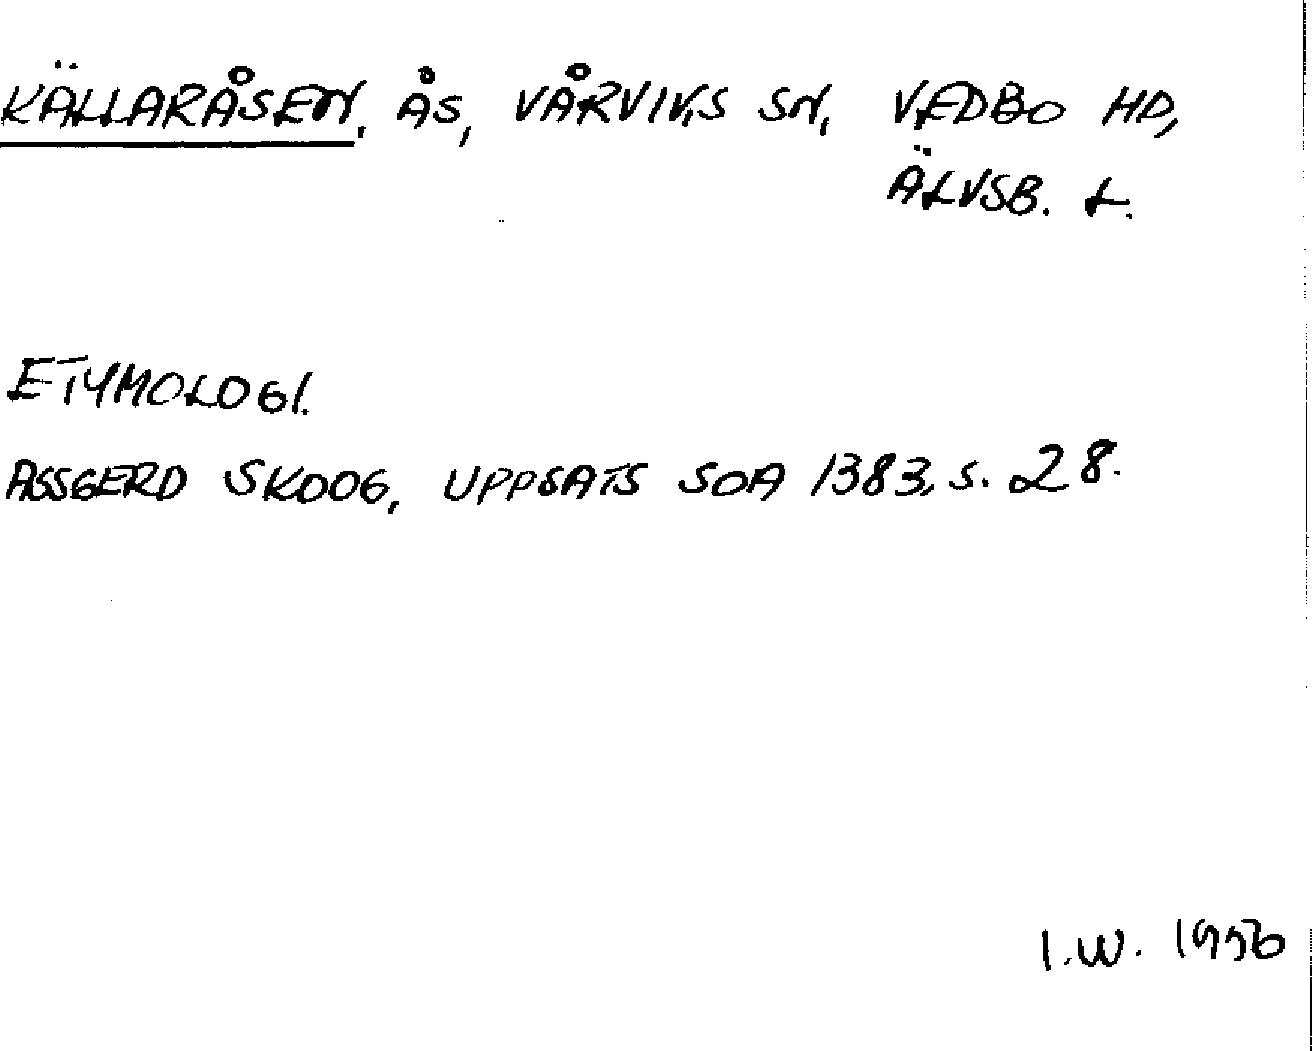 KÄLLARÅSEN, ÅS, VÅRVIKS SN, VEDBO HD,
ÄLVSB. L.
ETYMOLOGI.
ASSGERD SKOOG, UPPSATS SOA 1383, S. 28.
I.W. 1956